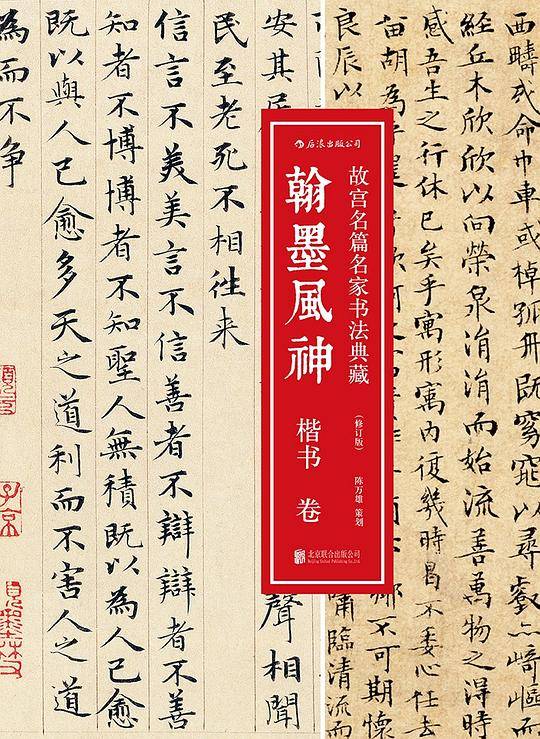 西疇或命巾車或棹孤舟既窈窕以尋壑亦崎嶇而
經丘木欣欣以向榮泉涓涓而始流善萬物之得時
感吾生之行休已矣乎寓形寓内復幾時曷不委心任去
留胡為
不可期懷
良辰以
嘯臨清流而
后浪出版公司
故宫名篇名家书法典藏
(修订版)
陈万雄 策划
翰墨風神
楷书 卷
北京联合出版公司
Beijing United Publishing Co.,Ltd.
安其居
聲相聞
民至老死不相往来
信言不美美言不信善者不辯辯者不善
知者不博博者不知聖人無積既以為人己愈
既以與人己愈多天之道利而不害人之道
為而不争